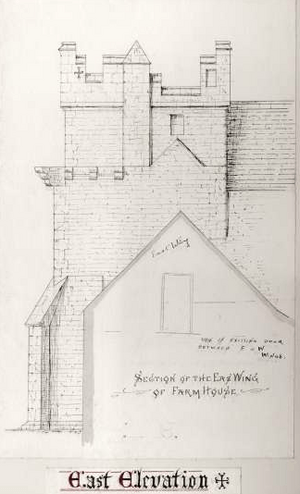 East Wing
TOP OF EXISTING DOOR
BETWEEN E & W
WINGS.
SECTION OF THE EAST WING
OF FARM HOUSE
East Elevation